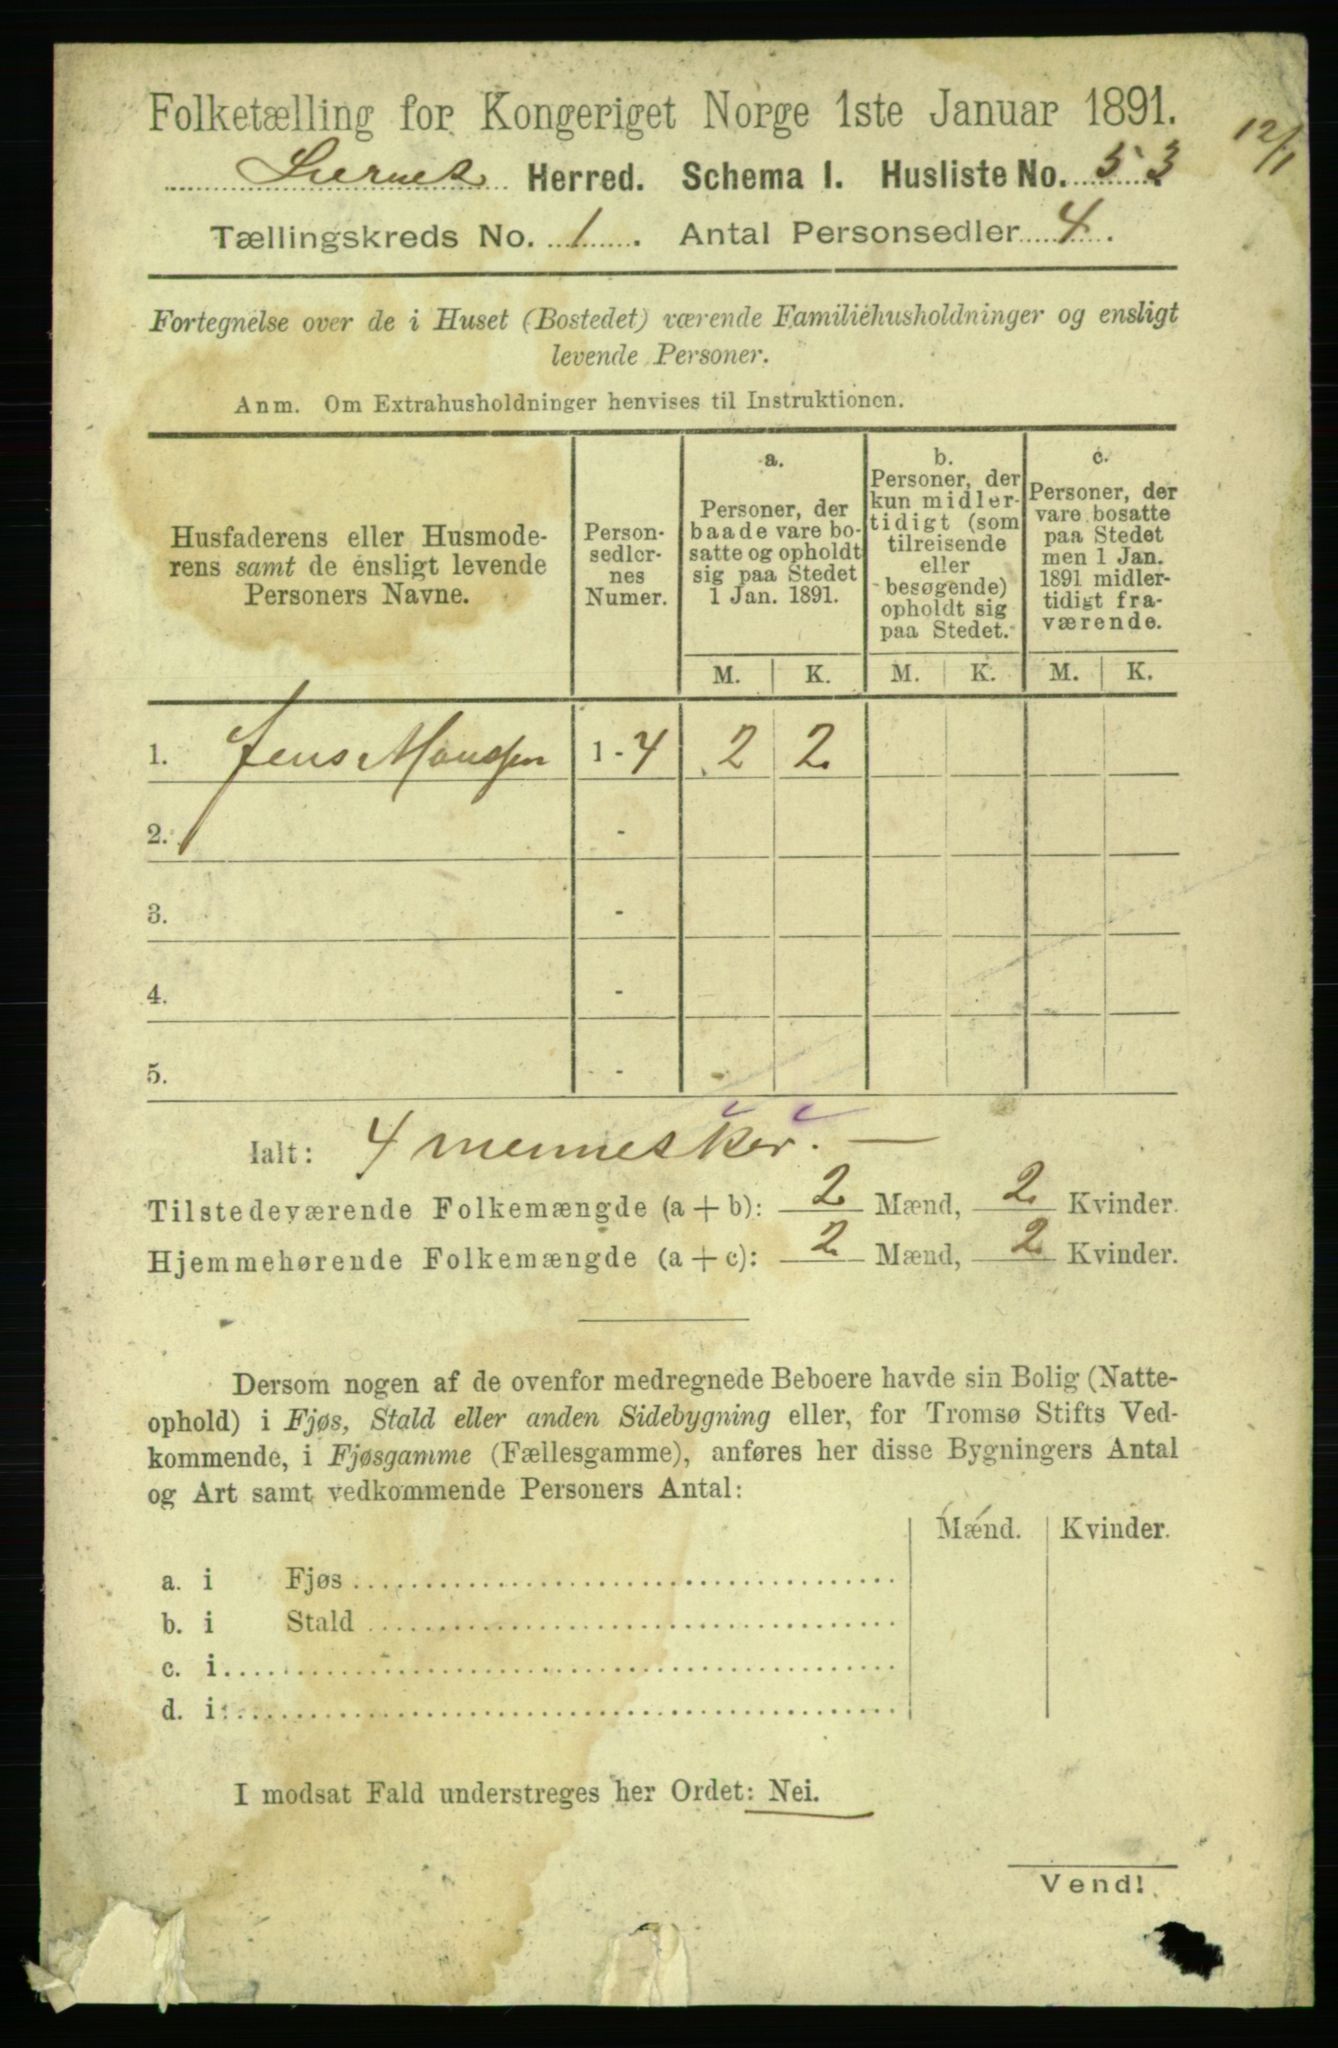 Folketælling for Kongeriget Norge 1ste Januar 1891.
12/1
Herred. Schema I. Husliste No. 53
Tællingskreds No. 1. Antal Personsedler 4.
Fortegnelse over de i Huset (Bostedet) værende Familiehusholdninger og ensligt
levende Personer.
Anm. Om Extrahusholdninger henvises til Instruktionen.
Husfaderens eller Husmode-
rens samt de ensligt levende
Personers Navne.
Person-
sedler-
nes
Numer.
a.
Personer, der
baade vare bo-
satte og opholdt
sig paa Stedet
1 Jan. 1891.
b.
Personer, der
kun midler-
tidigt (som
tilreisende
eller
besøgende)
opholdt sig
paa Stedet.
c.
Personer, der
vare bosatte
paa Stedet
men 1 Jan.
1891 midler-
tidigt fra-
værende.
M. K. M. K. M. K.
1. Jens 1 - 4 2 2
2. -
3. -
4. -
5. -
Ialt: 4 mennesker. —
Tilstedeværende Folkemængde (a + b): 2 Mænd, 2 Kvinder.
Hjemmehørende Folkemængde (a + c): 2 Mænd, 2 Kvinder.
Dersom nogen af de ovenfor medregnede Beboere havde sin Bolig (Natte-
ophold) i Fjøs, Stald eller anden Sidebygning eller, for Tromsø Stifts Ved-
kommende, i Fjøsgamme (Fællesgamme), anføres her disse Bygningers Antal
og Art samt vedkommende Personers Antal:
Mænd. Kvinder.
a. i Fjøs
b. i Stald
c. i
d. i
I modsat Fald understreges her Ordet: Nei.
Vend!